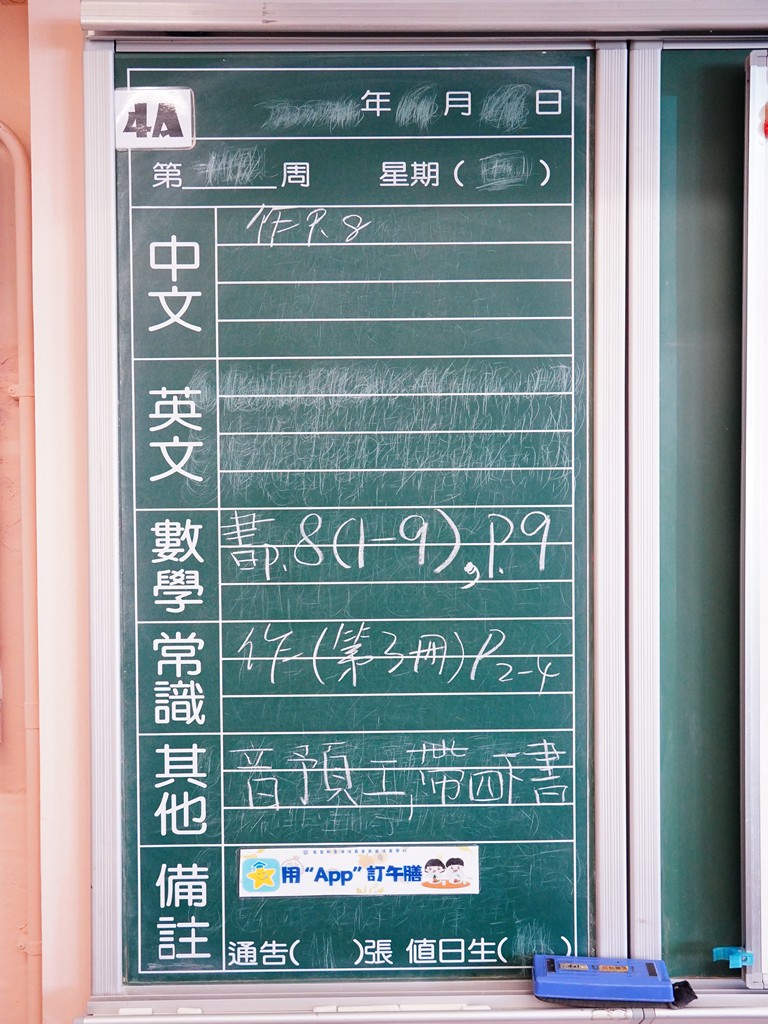 4A
年 月 日
第 周 星期( )
中文
作 P. 8
英文
數學
書p.8(1-9),P.9
常識
作(第3冊)P2-4
其他
音預工,帶四下書
備註
用“App”訂午膳
通告( )張 值日生( )